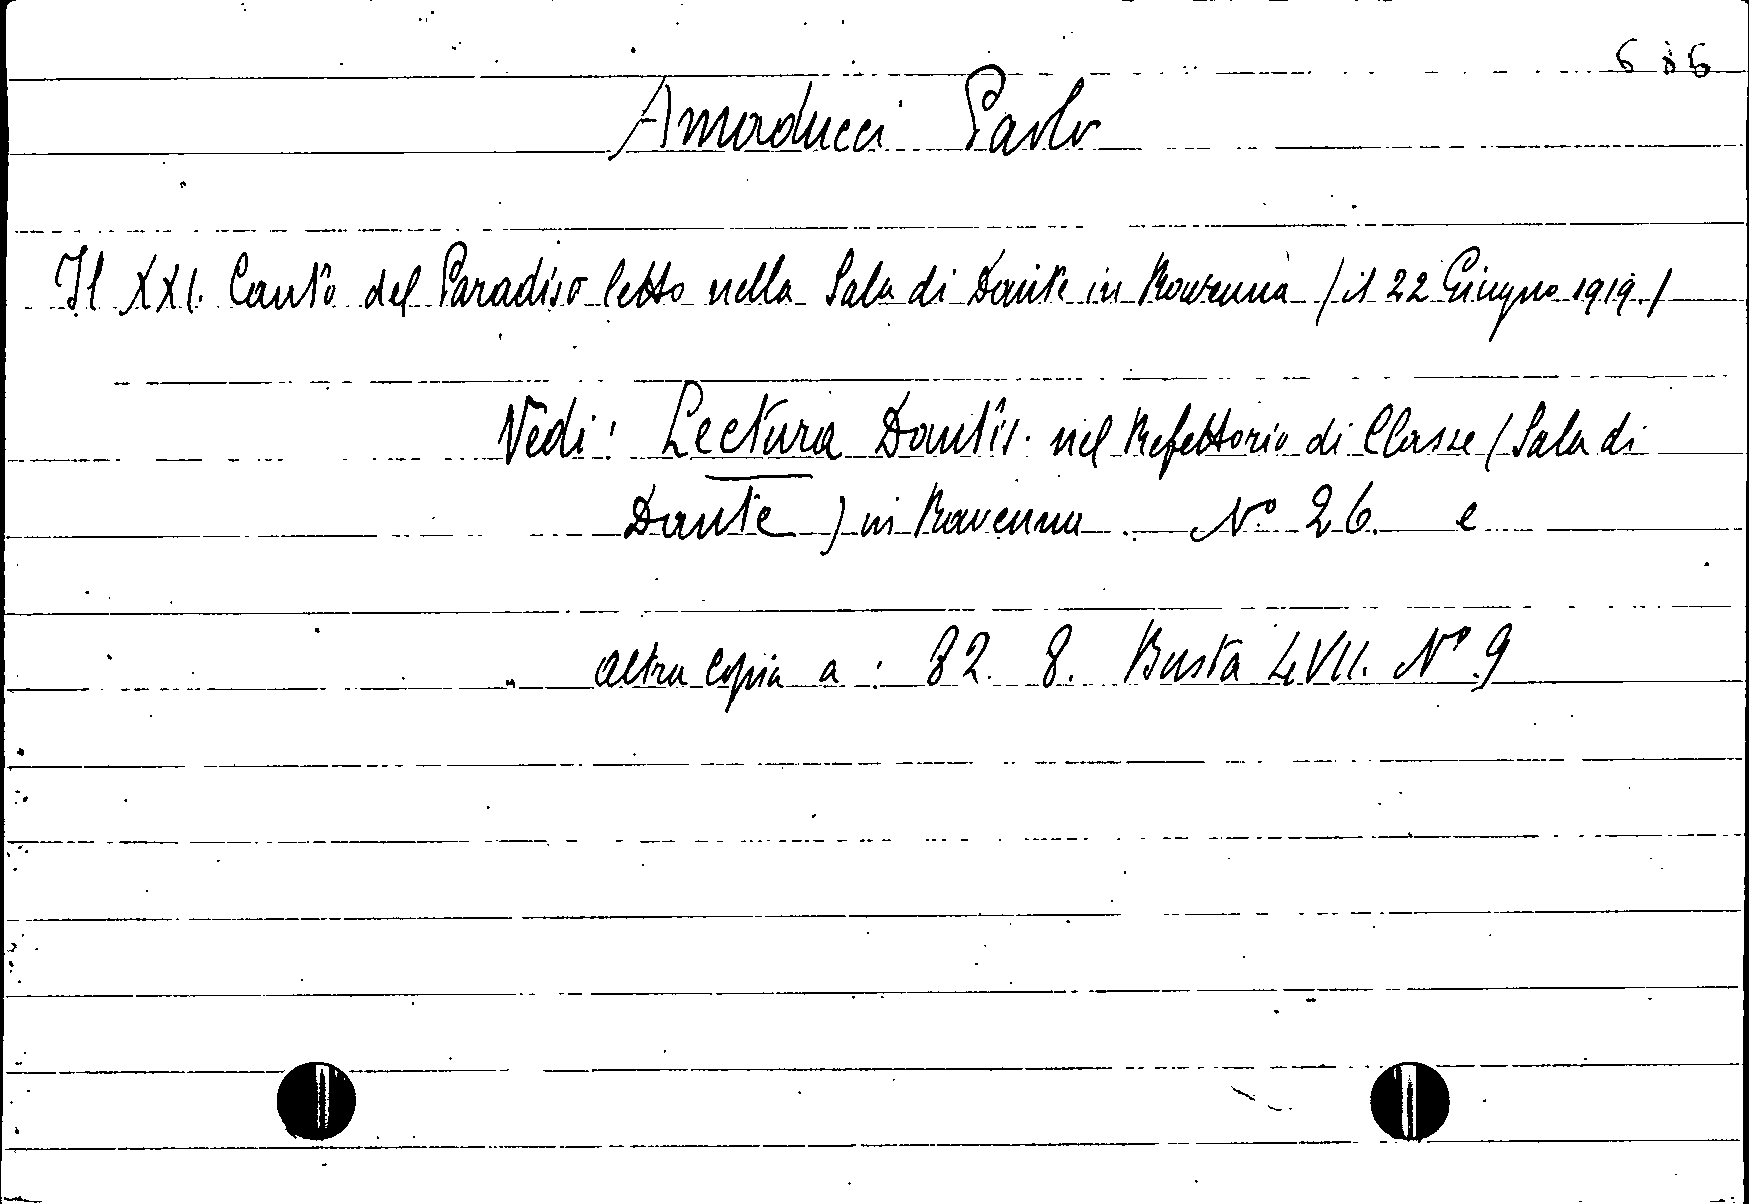 686
Amaducci Paolo
Il XXI. Canto del Paradiso letto nella Sala di Dante in Ravenna (il 22 Giugno 1919.)
Vedi: Lectura Dantis. nel Refettorio di Classe (Sala di
Dante) in Ravenna. N° 26. e
" altra copia a: 82. 8. Busta LVII. N° 9